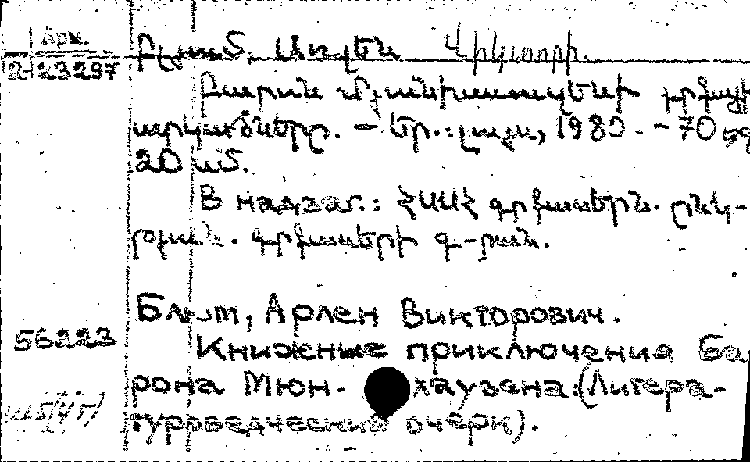 Арм.
2-23297
Բլյում, Առլեն Վիկտորի.
Բարոն Մյունխաուզենի գրքային
արկածները. — Եր.: Լույս, 1980. - 70 էջ
20 սմ.
В надзаг.: ՀՍՍՀ գրքասերն. ընկ-
գրքասերի
Блюм, Арлен Викторович.
56223
Книжные приключения ба
рона Мюн- хаузена:(Литера-
туроведческий очерк).